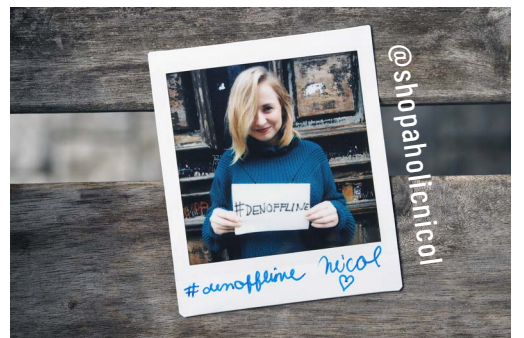 @shopaholicnicol
#DENOFFLINE
#denoffline Nicol